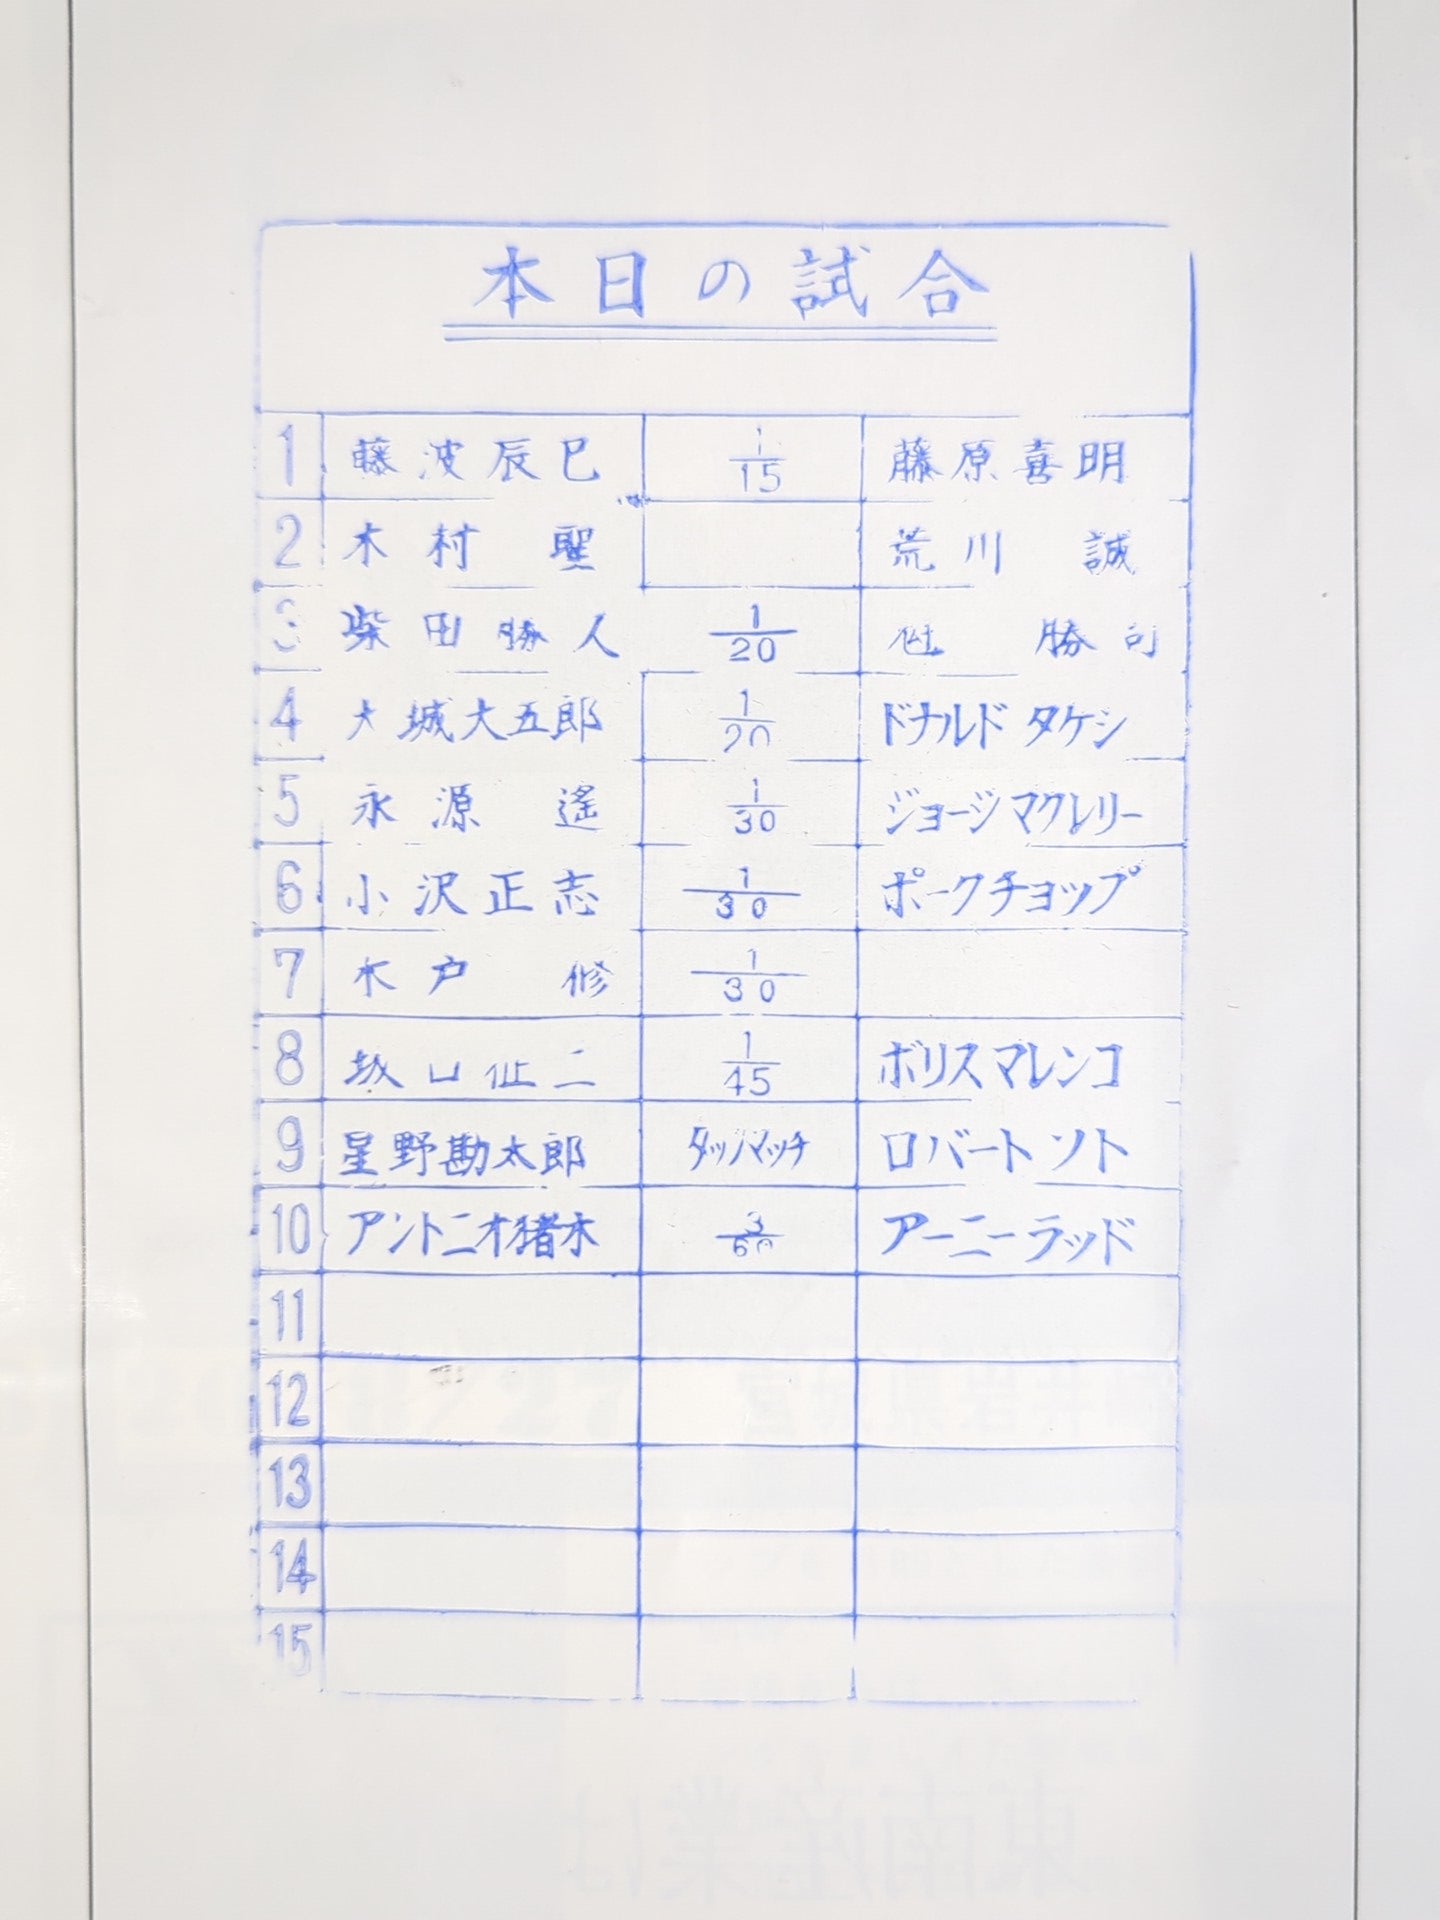 本日の試合
1 藤波辰巳 1/15 藤原喜明
2 木村 聖 荒川 誠
3 柴田勝人 1/20 勝司
4 大城大五郎 1/20 ドナルド タケシ
5 永源 遙 1/30 ジョージマクレリー
6 小沢正志 1/30 ポークチョップ
7 木戸 修 1/30
8 坂口征二 1/45 ボリスマレンコ
9 星野勘太郎 タッグマッチ ロバート ソト
10 アントニオ猪木 3/60 アーニーラッド
11
12
13
14
15